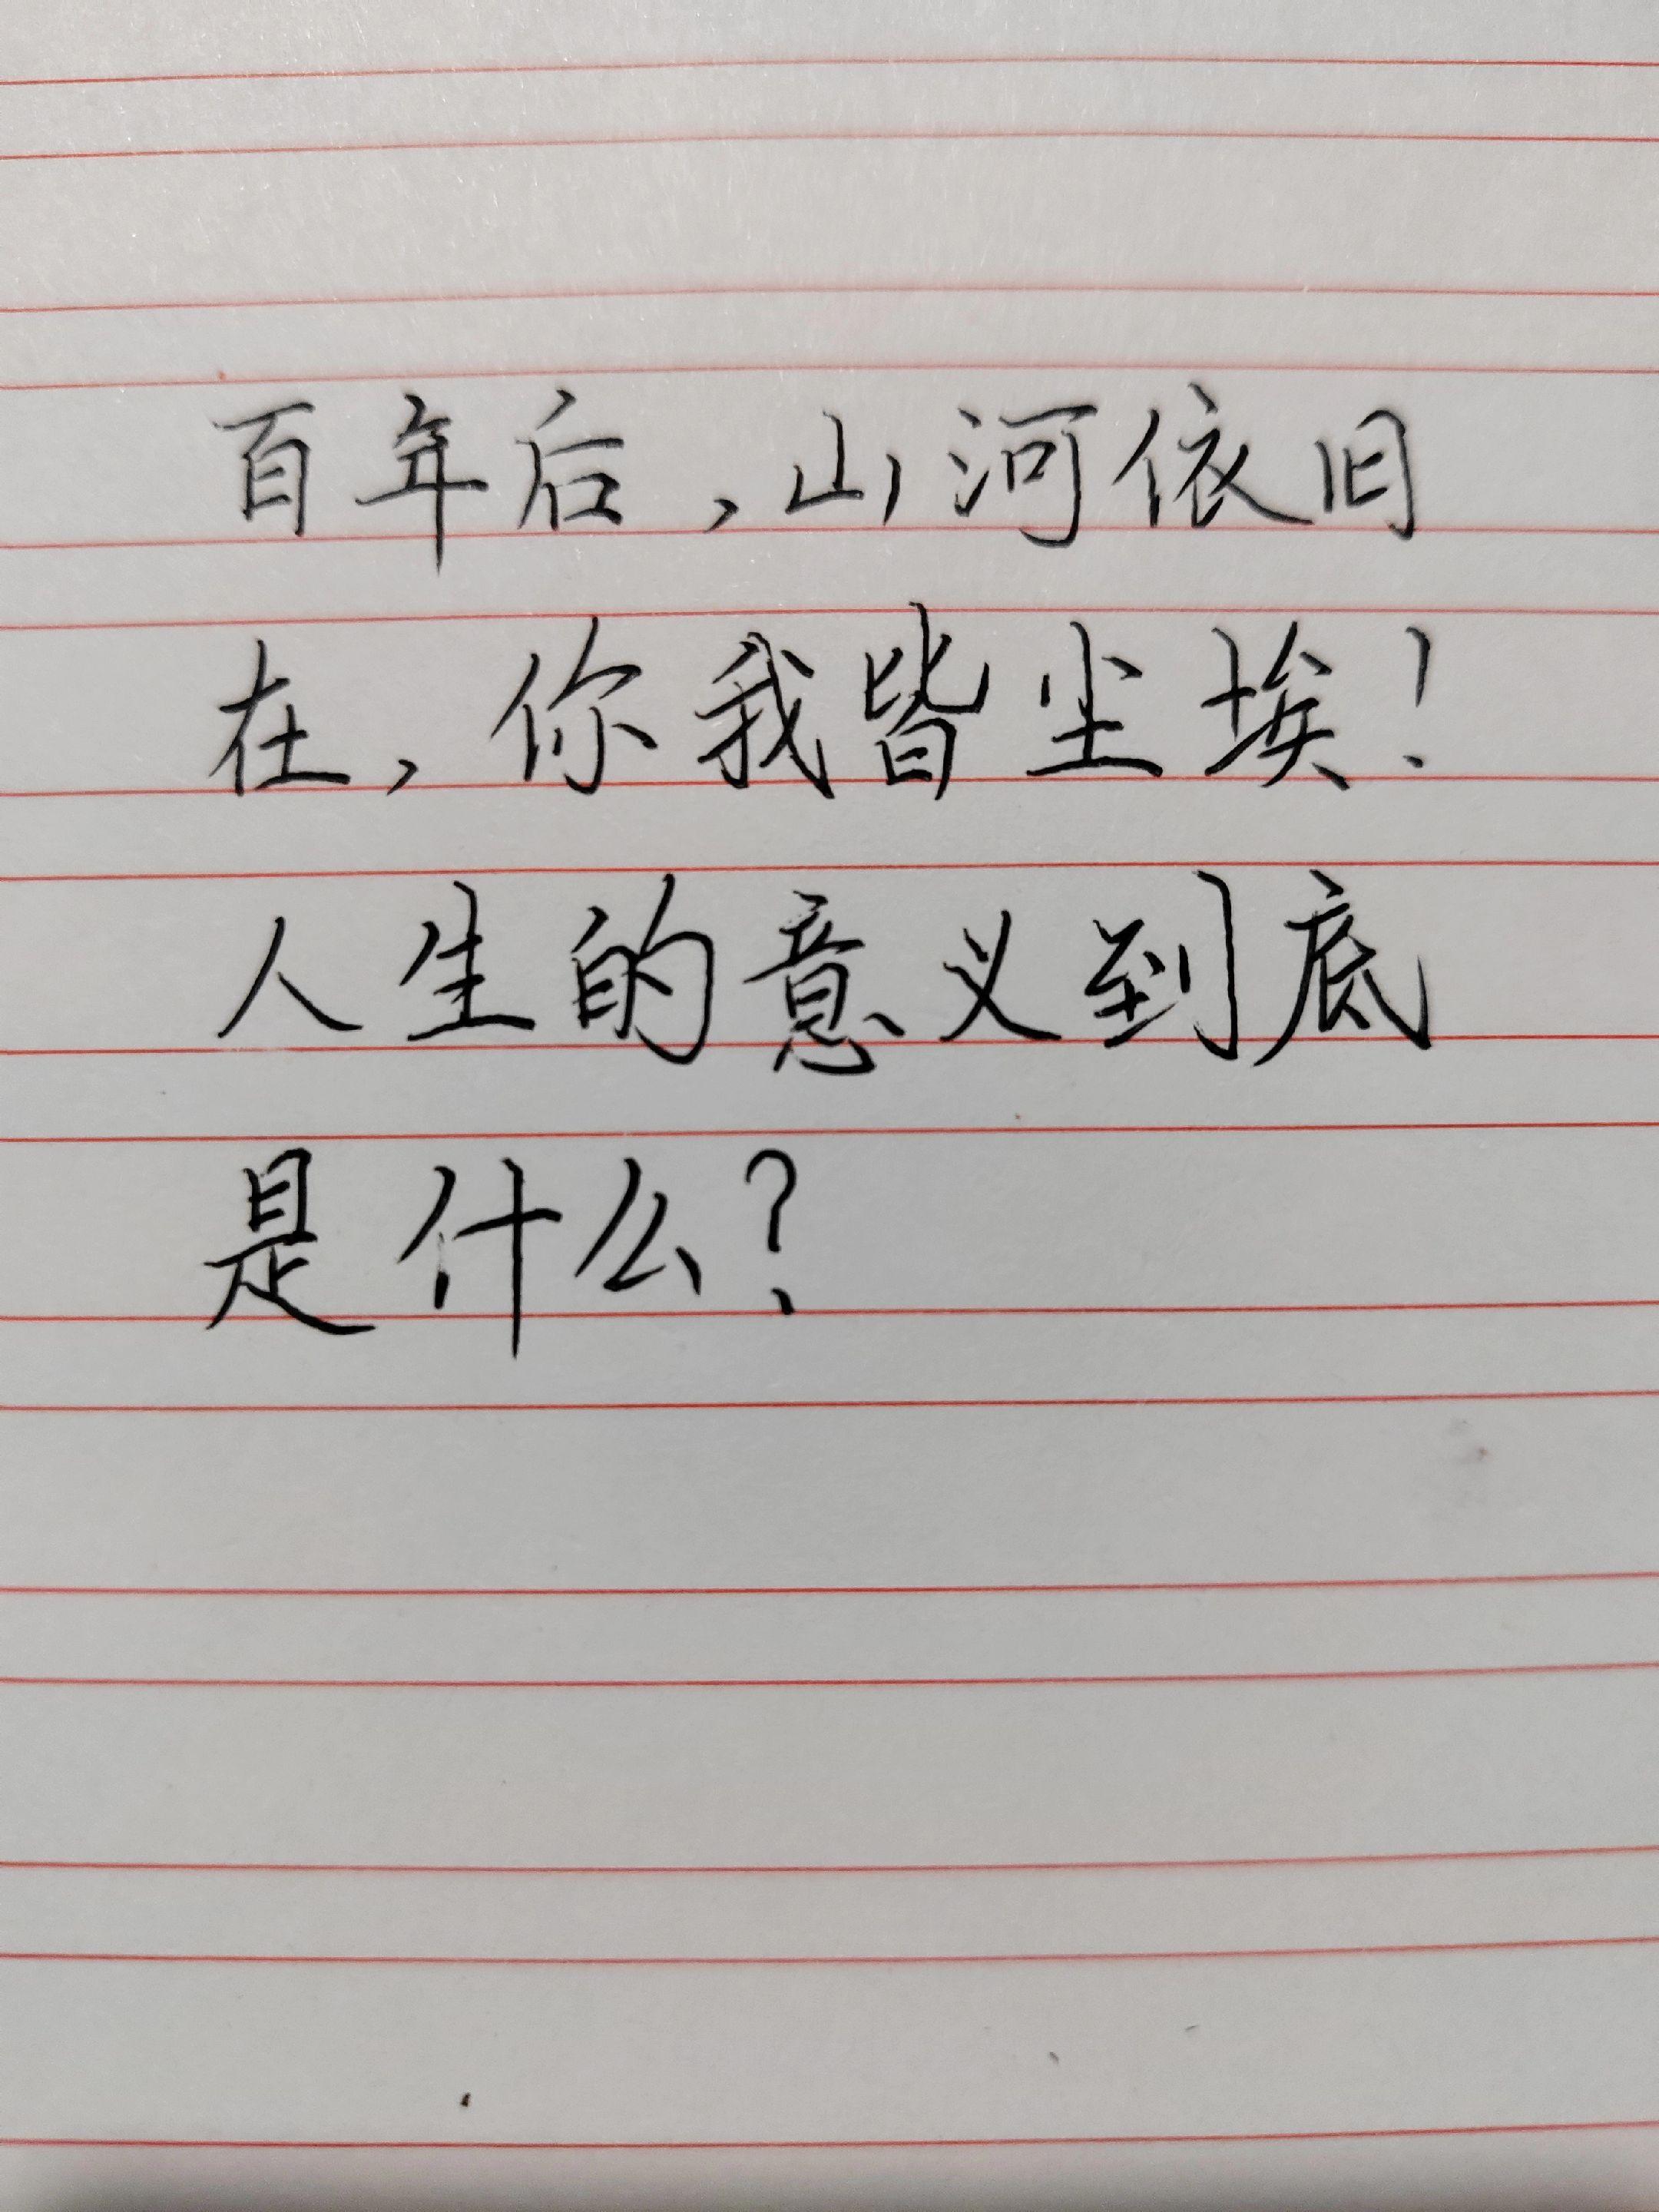 百年后，山河依旧
在，你我皆尘埃！
人生的意义到底
是什么？